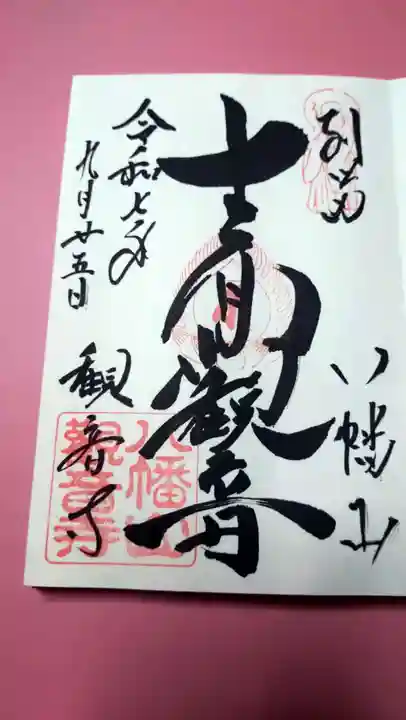 別当
八幡山
十一面観音
令和七年
九月廿五日
観音寺
八幡山
観音寺